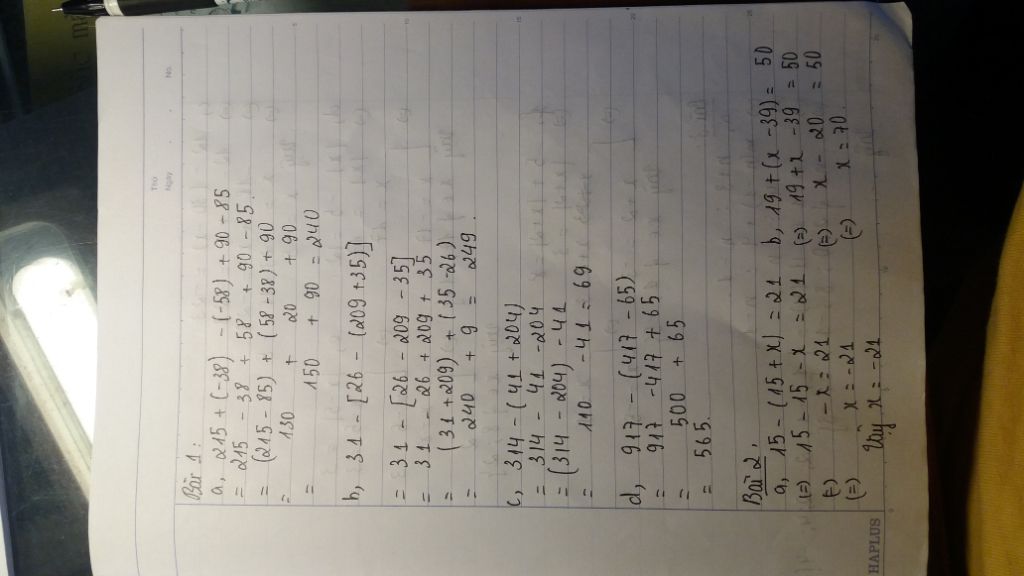 Thứ
Ngày . . No.
Bài 1:
a, 215 + (-38) - (-58) + 90 - 85
= 215 - 38 + 58 + 90 - 85.
= (215 - 85) + (58 - 38) + 90
= 130 + 20 + 90
= 150 + 90 = 240
b, 31 - [26 - (209 + 35)]
= 31 - [26 - 209 - 35]
= 31 - 26 + 209 + 35
= (31 + 209) + (35 - 26)
= 240 + 9 = 249.
c, 314 - (41 + 204)
= 314 - 41 - 204
= (314 - 204) - 41
= 110 - 41 = 69
d, 917 - (417 - 65)
= 917 - 417 + 65
= 500 + 65
= 565.
Bài 2.
a, 15 - (15 + x) = 21 b, 19 + (x - 39) = 50
(=) 15 - 15 - x = 21 (=) 19 + x - 39 = 50
(=) - x = 21 (=) x - 20 = 50
(=) x = -21 (=) x = 70.
Vậy x = -21
HAPLUS